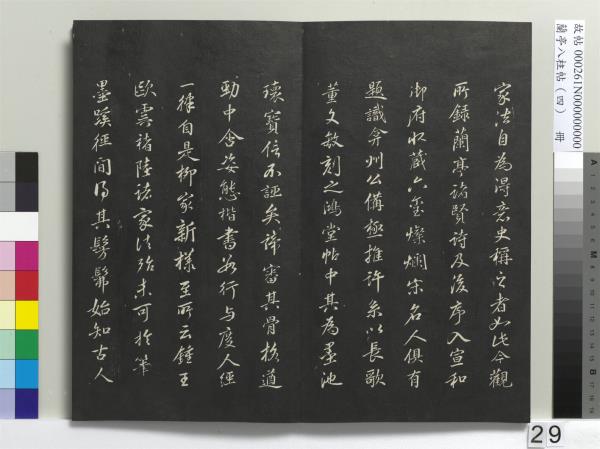 家法自為得意史稱之者如此今觀
所録蘭亭諸賢詩及後序入宣和
御府收藏六璽燦爛宋名人俱有
題識弇州公備極推許系以長歌
董文敏刻之鴻堂帖中其為墨池
瓌寶信不誣矣諦審其骨格遒
勁中含姿態楷書如行与度人經
一種自是柳家新様至所云錘王
歐雲褚陸諸家法殆未可於筆
墨蹊徑間得其髣髴始知古人
故帖 000261N000000000
蘭亭八柱帖（四） 冊
29